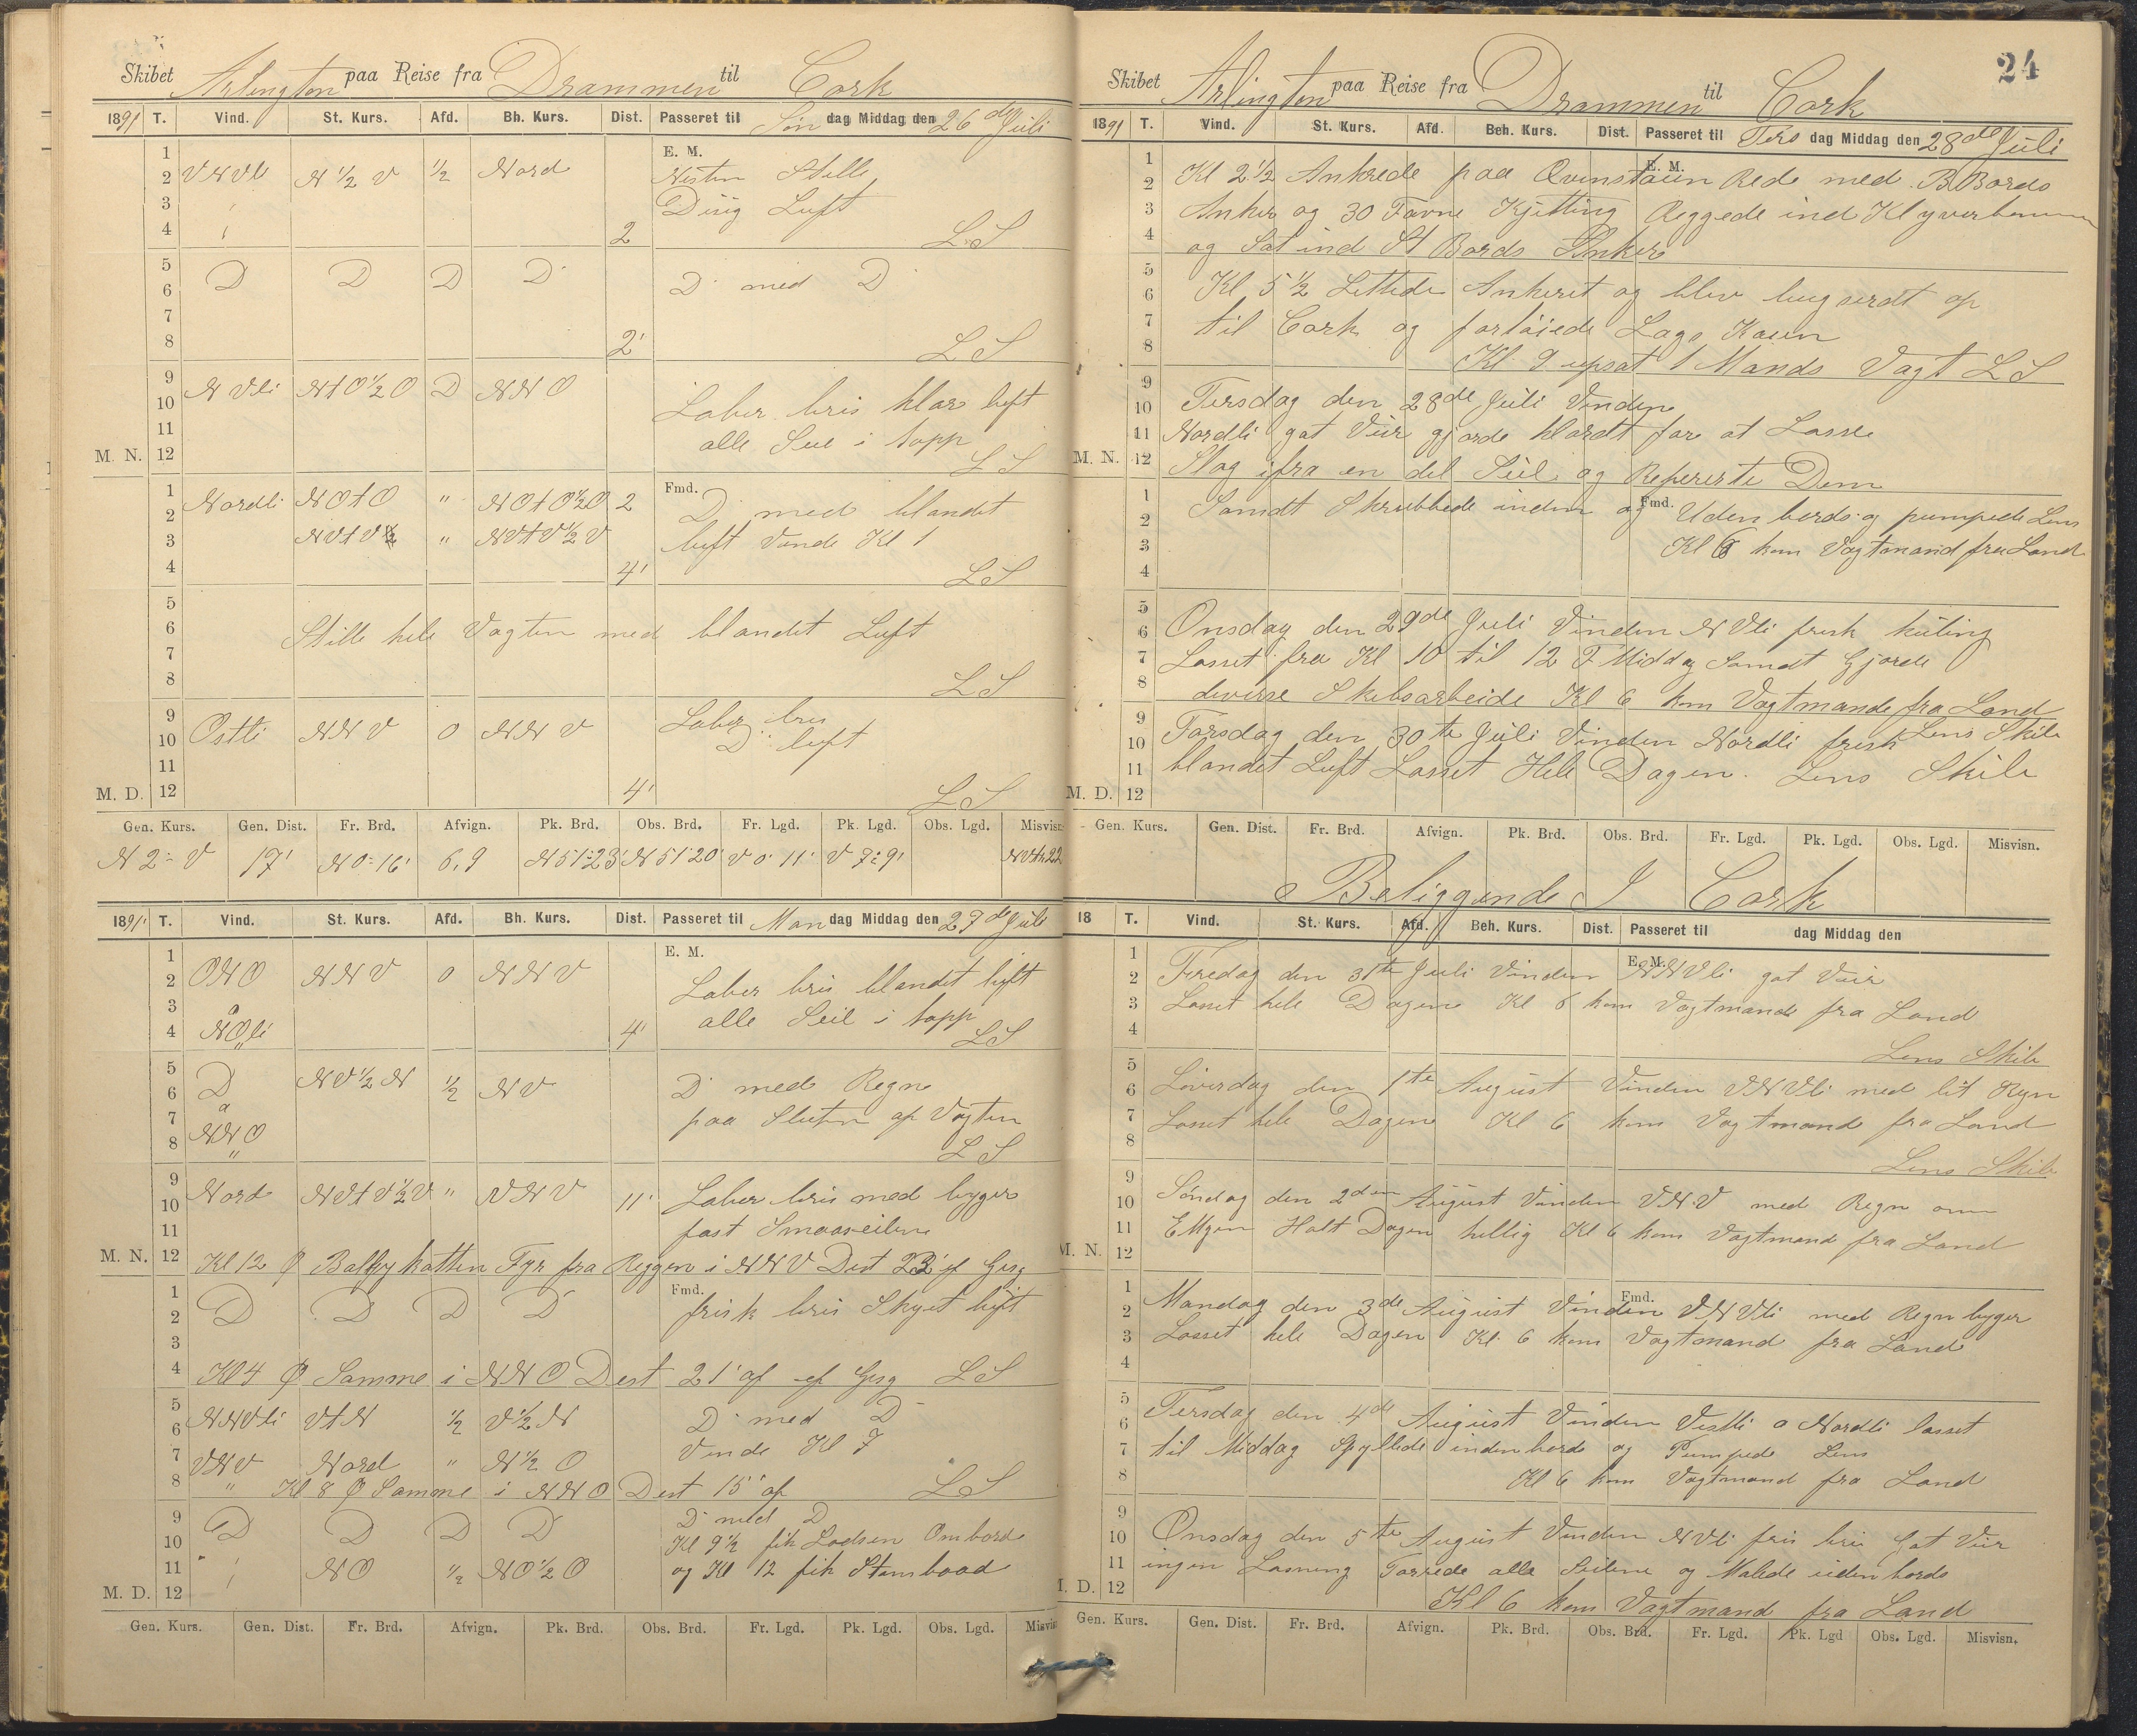 Skibet Arlington paa Reise fra Drammen til Cork
1891 T. Vind. St. Kurs. Afd. Bh. Kurs. Dist. Passeret til Søn dag Middag den 26de Juli
E. M.
1
2 VNVl N ½ V ½ Nord Nisten Stille
3 Diiig Luft
4 2 LS
5
6 D D D D D med D
7
8 2' LS
9 NVli NtO½O D NNO
10 Laber bris klar luft
11 alle Seil i topp
M. N. 12 LS
Fmd.
1 Nordli NOtO " NOtO½O 2 D med blandet
2
3 NVtV½ " NVtV½V luft Vende Kl 1
4 4' LS
5
6 Stille hele Vagten med blandet Luft
7
8 LS
9 Laber bris
10 Ostli NNV 0 NNV D luft
11
M. D. 12 4' LS
Gen. Kurs. Gen. Dist. Fr. Brd. Afvign. Pk. Brd. Obs. Brd. Fr. Lgd. Pk. Lgd. Obs. Lgd. Misvisn.
N 2 V 17' N 0° 16' 6,9 N 51° 23' N 51° 20' V 0° 11' V 7° 9'
1891 T. Vind. St. Kurs. Afd. Bh. Kurs. Dist. Passeret til Man dag Middag den 27de Juli
E. M.
1
2 ONO NNV 0 NNV Laber bris blandet luft
3 a alle Seil i topp
4 NOli 4' LS
5
6 D NV½N ½ NV D med Regn
7 a paa Slutn af Vagten
8 NNO LS
9
10 Nord NVtV½V " VNV 11' Laber bris med byger
11 fast Smaaseilene
M. N. 12 Kl 12 Ballykotten Fyr fra Reggen i NNV Dist 23' ef Gisg
Fmd.
1
2 D D D D frisk bris Skyet luft
3
4 Kl 4 Samme i NNO Dist 21' af ef Gisg LS
5
6 NNVli VtN ½ V½N D med D
7 VNV Nord " N½O Vende Kl 7
8 " Kl 8 Samme i NNO Dist 15' af LS
9 D D D D D med D
10 Kl 9½ fik Lodsen Ombord
11 NO ½ NO½O og Kl 12 fik Stambaad
M. D. 12
Gen. Kurs. Gen. Dist. Fr. Brd. Afvign. Pk. Brd. Obs. Brd. Fr. Lgd. Pk. Lgd. Obs. Lgd. Misvisn.
24
Skibet Arlington paa Reise fra Drammen til Cork
1891 T. Vind. St. Kurs. Afd. Beh. Kurs. Dist. Passeret til Tirs dag Middag den 28de Juli
E. M.
1
2 Kl 2½ Ankrede paa Qvinstauen Red med BBords
3 Anker og 30 Favne Kjetting Reggede ind Klyverbommen
4 og Sat ind St Bords Anker
5
6 Kl 5½ Lettede Ankeret og blev bugserdt op
7 til Cork og fortøiede Langs Kaien
8 Kl 9 upsat 1 Mands Vagt LS
9 Tirsdag den 28de Juli Vinden
10
11 Nordli gat Veir gjorde klardt for at Losse
M. N. 12 Slog ifra en del Seil og Repererte Dem
Fmd.
1 Samdt Skrubbede inden og Uden bords og pumpede Lens
2
3 Kl 6 kom Vagtmand fra Land
4
5
6 Onsdag den 29de Juli Vinden NVli frisk kuling
7 Losset fra Kl 10 til 12 F Middag Samdt Gjorde
8 diverse Skibsarbeide Kl 6 kom Vagtmande fra Land
9 Lens Skib
10 Torsdag den 30te Juli Vinden Nordli frisk
11 blandet Luft Losset Hele Dagen. Lens Skib
M. D. 12
Gen. Kurs. Gen. Dist. Fr. Brd. Afvign. Pk. Brd. Obs. Brd. Fr. Lgd. Pk. Lgd. Obs. Lgd. Misvisn.
Beliggende I Cork
18 T. Vind. St. Kurs. Afd. Beh. Kurs. Dist. Passeret til dag Middag den
E. M.
1
2 Fredag den 31te Juli Vinden NNVli gat Veir
3 Losset hele Dagen Kl 6 kom Vagtmand fra Land
4
5 Lens Skib
6 Løverdag den 1te August Vinden VNVli med lit Regn
7 Losset hele Dagen Kl 6 kom Vagtmand fra Land
8 Lens Skib
9
10 Søndag den 2den August Vinden VNV med Regn om
11 Ettgen Holt Dagen hellig Kl 6 kom Vagtmand fra Land
M. N. 12
Fmd.
1
2 Mandag den 3de August Vinden VNVli med Regn byger
3 Losset hele Dagen Kl 6 kom Vagtmand fra Land
4
5
6 Tirsdag den 4de August Vinden Vestli a Nordli losset
7 til Middag Spyllede inden bords og Pumped Lens
8 Kl 6 kom Vagtmand fra Land
9
10 Onsdag den 5te August Vinden NVli fris bris Gat Veir
11 ingen Losning Tørrede alle Seilene og Malede uden bords
M. D. 12 Kl 6 kom Vagtmand fra Land
Gen. Kurs. Gen. Dist. Fr. Brd. Afvign. Pk. Brd. Obs. Brd. Fr. Lgd. Pk. Lgd Obs. Lgd. Misvisn.